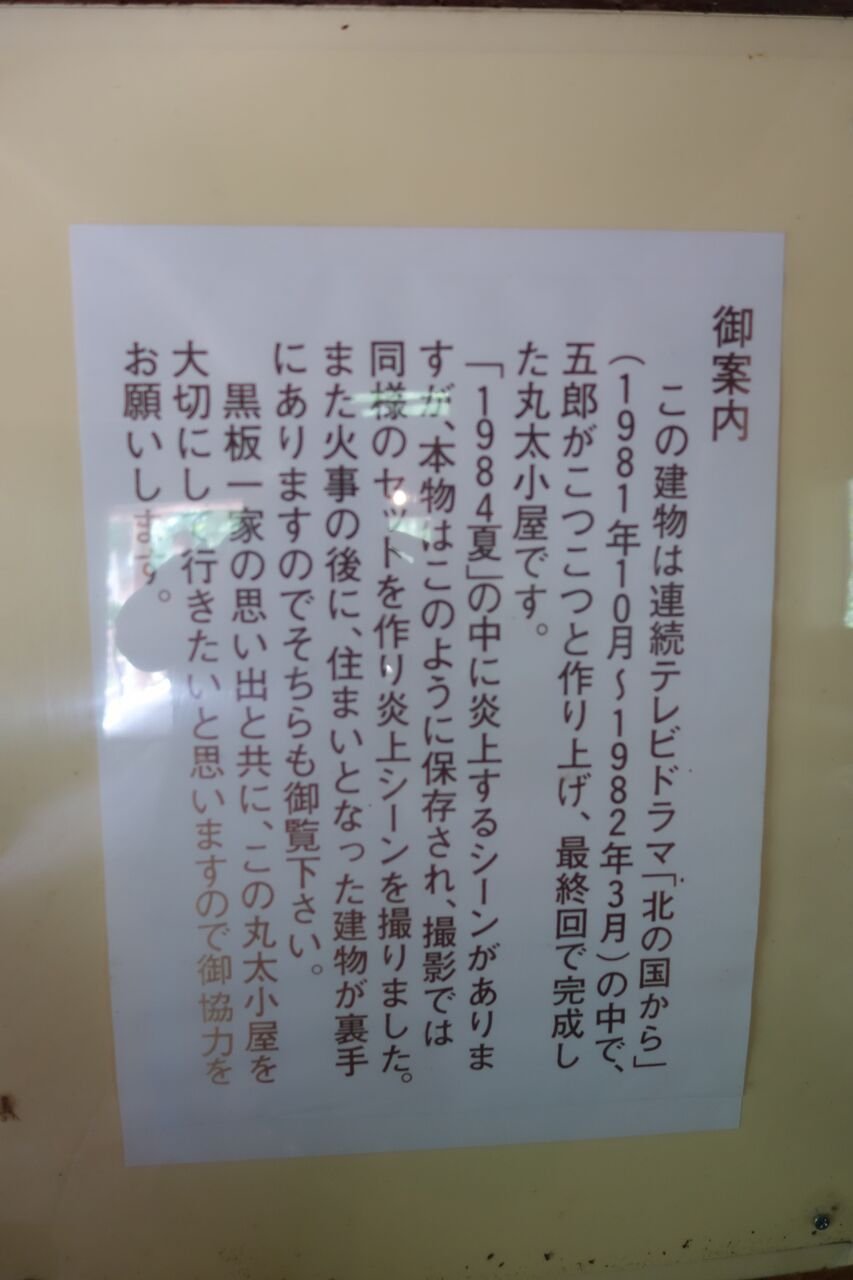 御案内
この建物は連続テレビドラマ「北の国から」
（1981年10月～1982年3月）の中で、
五郎がこつこつと作り上げ、最終回で完成し
た丸太小屋です。
「1984夏」の中に炎上するシーンがありま
すが、本物はこのように保存され、撮影では
同様のセットを作り炎上シーンを撮りました。
また火事の後に、住まいとなった建物が裏手
にありますのでそちらも御覧下さい。
黒板一家の思い出と共に、この丸太小屋を
大切にして行きたいと思いますので御協力を
お願いします。